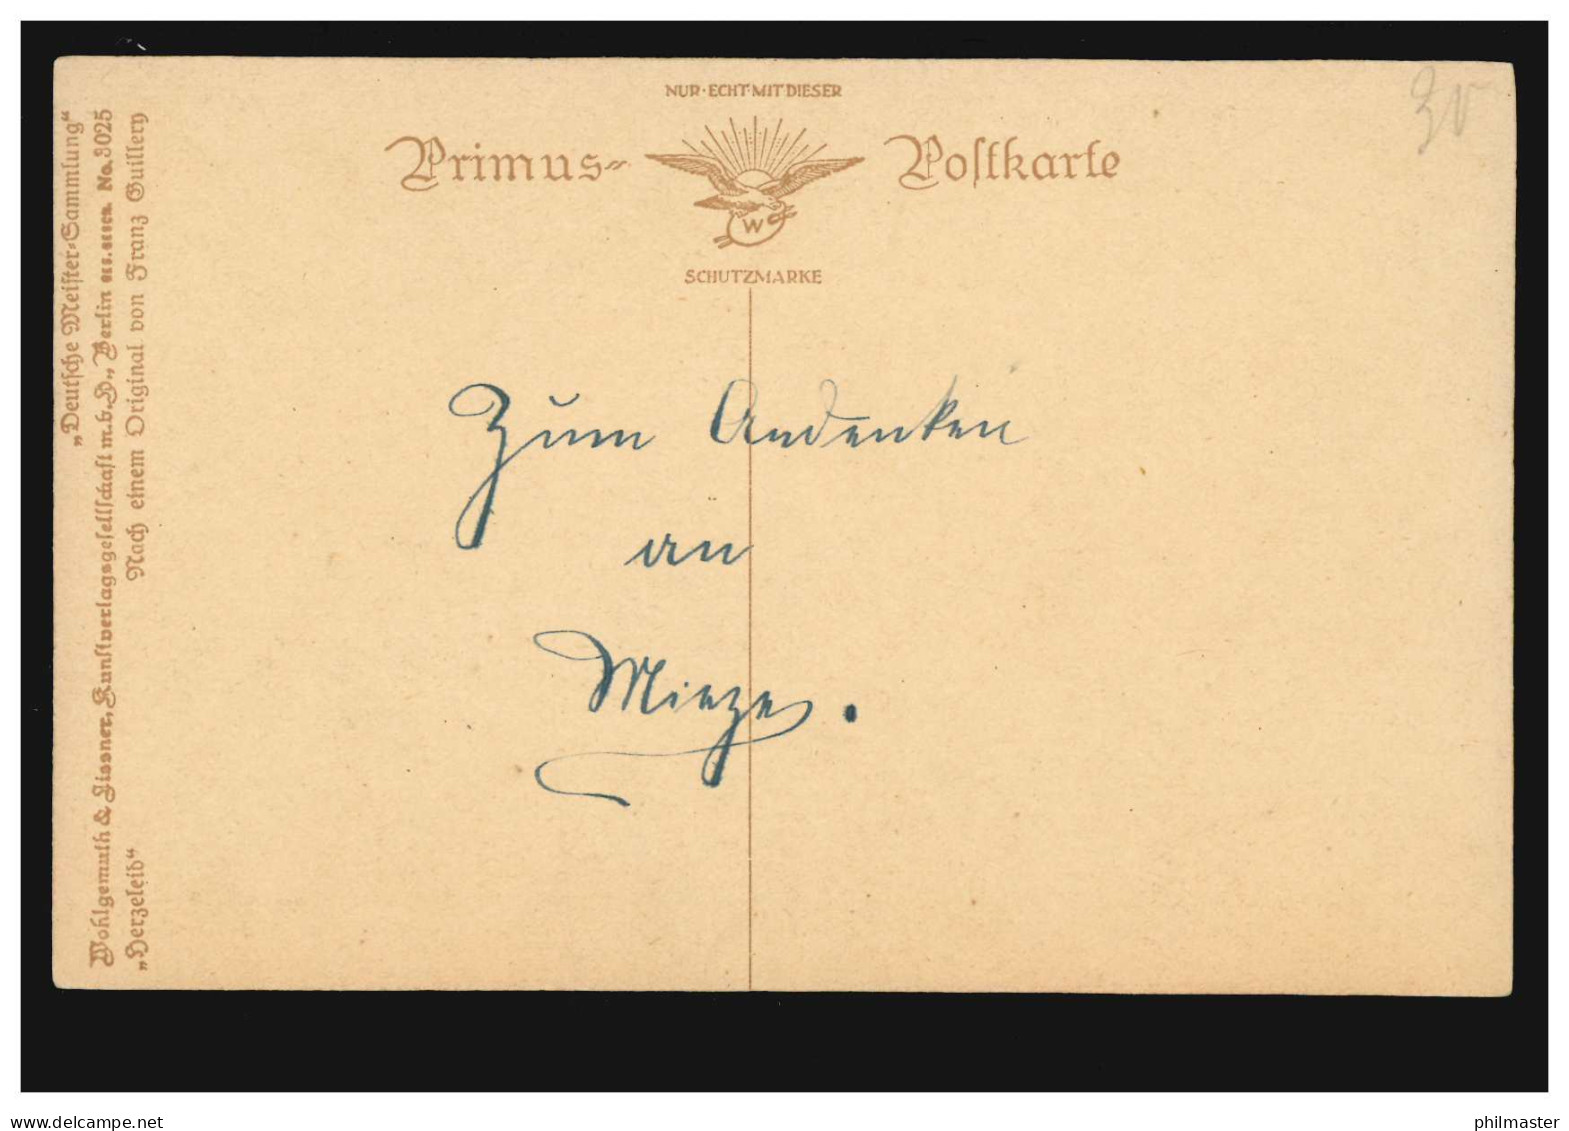 NUR·ECHT·MIT DIESER
Primus-Postkarte
W
SCHUTZMARKE
„Deutsche Meister-Sammlung“
Wohlgemuth & Lissner, Kunstverlagsgesellschaft m.b.H., Berlin No. 3025
„Herzeleid“ Nach einem Original von Franz Guillery
30
Zum Andenken
an
Mieze.
www.delcampe.net
philmaster